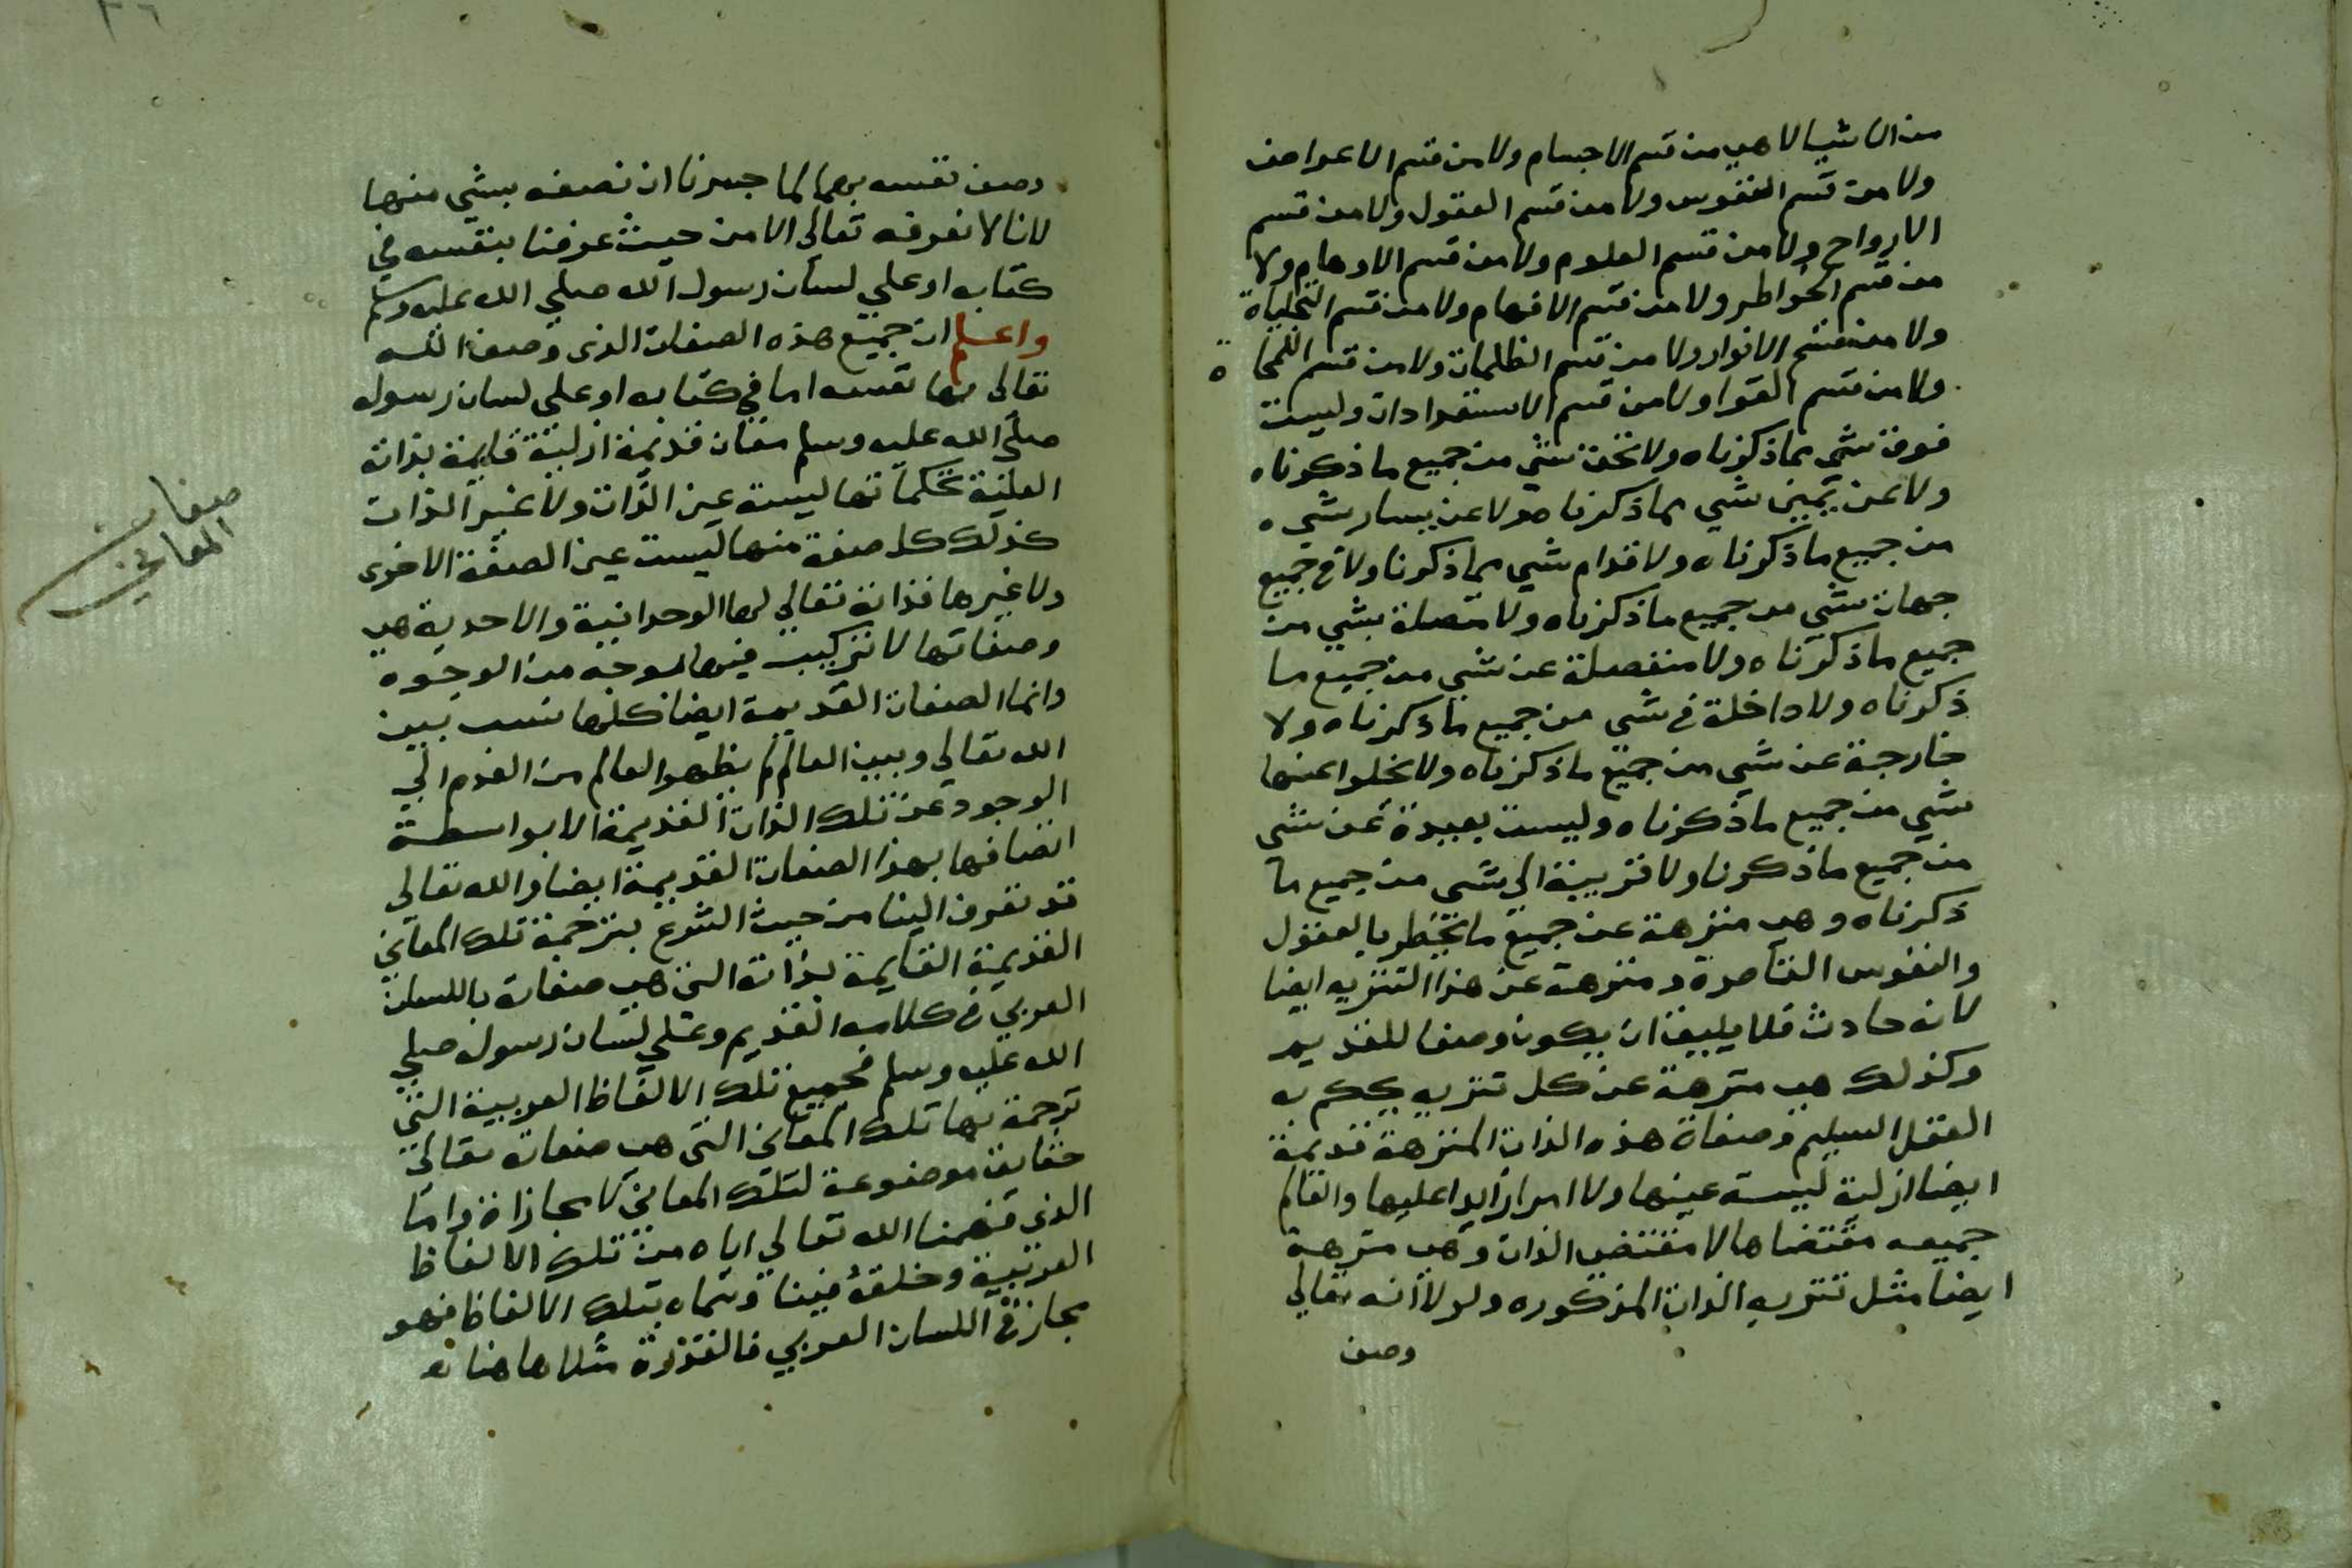 من الاشيا لا هي من قسم الاجسام ولا من قسم الاعراض
ولا من قسم النفوس ولا من قسم العقول ولا من قسم
الارواح ولا من قسم العلوم ولا من قسم الاوهام ولا
من قسم الخواطر ولا من قسم الافهام ولا من قسم التجلياة
ولا من قسم الانوار ولا من قسم الظلمات ولا من قسم
ولا من قسم القوا ولا من قسم الاستعدادات وليست
فوق شي مما ذكرناه ولا تحت شي من جميع ما ذكرناه
ولا عن يمين شي مما ذكرناه ولا عن يسار شي
من جميع ما ذكرناه ولا قدام شي مما ذكرنا ولا في جميع
جهات شي من جميع ما ذكرناه ولا متصلة بشي من
جميع ما ذكرناه ولا منفصلة عن شي من جميع ما
ذكرناه ولا داخلة في شي من جميع ما ذكرناه ولا
خارجة عن شي من جميع ما ذكرناه ولا يخلوا عنها
شي من جميع ما ذكرناه وليست بعيدة عن شي
من جميع ما ذكرنا ولا قريبة الي شي من جميع ما
ذكرناه وهي منزهة عن جميع ما يخطر بالعقول
والنفوس القاصرة ومنزهة عن هذا التنزيه ايضا
لانه حادث فلا يليق ان يكون وصفا للقديم
وكذلك هي منزهة عن كل تنزيه يحكم به
العقل السليم وصفاة هذه الذات المنزهة قديمة
ايضا ازلية ليست عينها ولا امرا زايدا عليها والعالم
جميعه مقتضاها لا مقتضي الذات وهي منزهة
ايضا مثل تنزيه الذات المذكوره ولولا انه تعالي
وصف
وصف نفسه بها لما جسرنا ان نصفه بشي منها
لاننا لا نعرفه تعالي الا من حيث عرفنا بنفسه في
كتابه او علي لسان رسول الله صلي الله عليه وسلم
واعلم ان جميع هذه الصفات الذي وصف الله
تعالي بها نفسه اما في كتابه او علي لسان رسوله
صلي الله عليه وسلم صفات قديمة ازلية قايمة بذاته
العلية فكما انها ليست عين الذات ولا غير الذات
كذلك كل صفة منها ليست عين الصفة الاخرى
ولا غيرها فذاته تعالي لها الوحدانية والاحدية هي
وصفاتها لا تركيب فيها لوجه من الوجوه
وانما الصفات القديمة ايضا كلها نسب بين
الله تعالي وبين العالم لم يظهر العالم من العدم الي
الوجود عن تلك الذات القديمة الا بواسطة
اتصافها بهذا الصفات القديمة ايضا والله تعالي
قد تعرف الينا من حيث الشرع بترجمة تلك المعاني
القديمة القايمة بذاته التي هي صفاته باللسان
العربي في كلامه القديم وعلي لسان رسول صلي
الله عليه وسلم فجميع تلك الالفاظ العربية التي
ترجمة بها تلك المعاني التي هي صفاته تعالي
حقايق موضوعة لتلك المعاني لا مجازاة واما
الذي فهمنا الله تعالي اياه من تلك الالفاظ
العربية وخلقه فينا وسماه بتلك الالفاظ فهو
مجاز في اللسان العربي فالقدرة مثلا ها هنا
صفات
المعاني